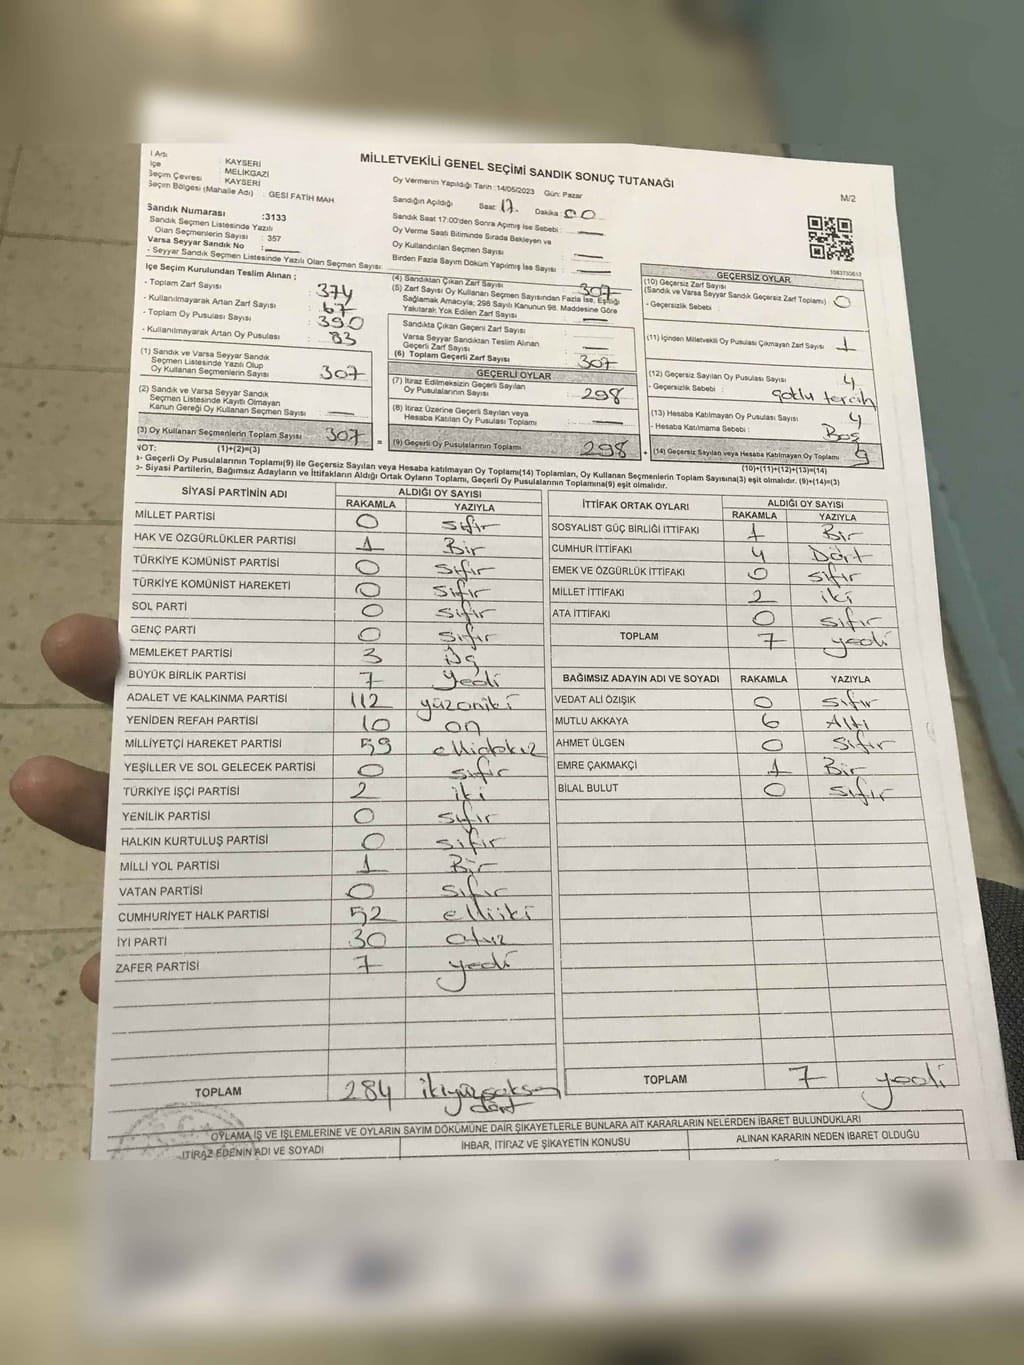 MİLLETVEKİLİ GENEL SEÇİMİ SANDIK SONUÇ TUTANAĞI
M/2
KAYSERİ
İlçe : MELİKGAZİ
Seçim Çevresi : KAYSERİ
Seçim Bölgesi (Mahalle Adı) : GESİ FATİH MAH
Sandık Numarası :3133
Sandık Seçmen Listesinde Yazılı
Olan Seçmenlerin Sayısı : 357
Varsa Seyyar Sandık No :
- Seyyar Sandık Seçmen Listesinde Yazılı Olan Seçmen Sayısı:
Oy Vermenin Yapıldığı Tarih :14/05/2023 Gün: Pazar
Sandığın Açıldığı Saat 17 Dakika 00
Sandık Saat 17:00'den Sonra Açımış İse Sebebi :
Oy Verme Saati Bitiminde Sırada Bekleyen ve
Oy Kullandırılan Seçmen Sayısı :
Birden Fazla Sayım Döküm Yapılmış İse Sayısı :
İlçe Seçim Kurulundan Teslim Alınan ;
- Toplam Zarf Sayısı : 374
- Kullanılmayarak Artan Zarf Sayısı : 67
- Toplam Oy Pusulası Sayısı : 390
- Kullanılmayarak Artan Oy Pusulası : 83
(1) Sandık ve Varsa Seyyar Sandık
Seçmen Listesinde Yazılı Olup
Oy Kullanan Seçmenlerin Sayısı : 307
(2) Sandık ve Varsa Seyyar Sandık
Seçmen Listesinde Kayıtlı Olmayan
Kanun Gereği Oy Kullanan Seçmen Sayısı :
(3) Oy Kullanan Seçmenlerin Toplam Sayısı 307
(4) Sandıktan Çıkan Zarf Sayısı : 307
(5) Zarf Sayısı Oy Kullanan Seçmen Sayısından Fazla İse, Eşitliği
Sağlamak Amacıyla; 298 Sayılı Kanunun 98. Maddesine Göre
Yakılarak Yok Edilen Zarf Sayısı :
Sandıkta Çıkan Geçerli Zarf Sayısı :
Varsa Seyyar Sandıktan Teslim Alınan
Geçerli Zarf Sayısı :
(6) Toplam Geçerli Zarf Sayısı : 307
GEÇERLİ OYLAR
(7) İtiraz Edilmeksizin Geçerli Sayılan
Oy Pusulalarının Sayısı : 298
(8) İtiraz Üzerine Geçerli Sayılan veya
Hesaba Katılan Oy Pusulası Toplamı :
= (9) Geçerli Oy Pusulalarının Toplamı : 298
GEÇERSİZ OYLAR
(10) Geçersiz Zarf Sayısı
(Sandık ve Varsa Seyyar Sandık Geçersiz Zarf Toplamı) : 0
- Geçersizlik Sebebi :
(11) İçinden Milletvekili Oy Pusulası Çıkmayan Zarf Sayısı : 1
(12) Geçersiz Sayılan Oy Pusulası Sayısı : 4
- Geçersizlik Sebebi : çoklu tercih
(13) Hesaba Katılmayan Oy Pusulası Sayısı : 4
- Hesaba Katılmama Sebebi : Boş
+ (14) Geçersiz Sayılan veya Hesaba Katılmayan Oy Toplamı 9
NOT: (1)+(2)=(3) (10)+(11)+(12)+(13)=(14)
- Geçerli Oy Pusulalarının Toplamı(9) ile Geçersiz Sayılan veya Hesaba katılmayan Oy Toplamı(14) Toplamları, Oy Kullanan Seçmenlerin Toplam Sayısına(3) eşit olmalıdır. (9)+(14)=(3)
- Siyasi Partilerin, Bağımsız Adayların ve İttifakların Aldığı Ortak Oyların Toplamı, Geçerli Oy Pusulalarının Toplamına(9) eşit olmalıdır.
SİYASİ PARTİNİN ADI ALDIĞI OY SAYISI
RAKAMLA YAZIYLA
MİLLET PARTİSİ 0 sıfır
HAK VE ÖZGÜRLÜKLER PARTİSİ 1 Bir
TÜRKİYE KOMÜNİST PARTİSİ 0 sıfır
TÜRKİYE KOMÜNİST HAREKETİ 0 sıfır
SOL PARTİ 0 sıfır
GENÇ PARTİ 0 sıfır
MEMLEKET PARTİSİ 3 üç
BÜYÜK BİRLİK PARTİSİ 7 yedi
ADALET VE KALKINMA PARTİSİ 112 yüzoniki
YENİDEN REFAH PARTİSİ 10 on
MİLLİYETÇİ HAREKET PARTİSİ 59 ellidokuz
YEŞİLLER VE SOL GELECEK PARTİSİ 0 sıfır
TÜRKİYE İŞÇİ PARTİSİ 2 iki
YENİLİK PARTİSİ 0 sıfır
HALKIN KURTULUŞ PARTİSİ 0 sıfır
MİLLİ YOL PARTİSİ 1 Bir
VATAN PARTİSİ 0 sıfır
CUMHURİYET HALK PARTİSİ 52 elliiki
İYİ PARTİ 30 otuz
ZAFER PARTİSİ 7 yedi
TOPLAM 284 ikiyüzseksen dört
İTTİFAK ORTAK OYLARI ALDIĞI OY SAYISI
RAKAMLA YAZIYLA
SOSYALIST GÜÇ BİRLİĞİ İTTİFAKI 1 Bir
CUMHUR İTTİFAKI 4 Dört
EMEK VE ÖZGÜRLÜK İTTİFAKI 0 sıfır
MİLLET İTTİFAKI 2 iki
ATA İTTİFAKI 0 sıfır
TOPLAM 7 yedi
BAĞIMSIZ ADAYIN ADI VE SOYADI RAKAMLA YAZIYLA
VEDAT ALİ ÖZIŞIK 0 sıfır
MUTLU AKKAYA 6 Altı
AHMET ÜLGEN 0 sıfır
EMRE ÇAKMAKÇİ 1 Bir
BİLAL BULUT 0 sıfır
TOPLAM 7 yedi
OYLAMA İŞ VE İŞLEMLERİNE VE OYLARIN SAYIM DÖKÜMÜNE DAİR ŞİKAYETLERLE BUNLARA AİT KARARLARIN NELERDEN İBARET BULUNDUKLARI
İTİRAZ EDENİN ADI VE SOYADI İHBAR, İTİRAZ VE ŞİKAYETİN KONUSU ALINAN KARARIN NEDEN İBARET OLDUĞU